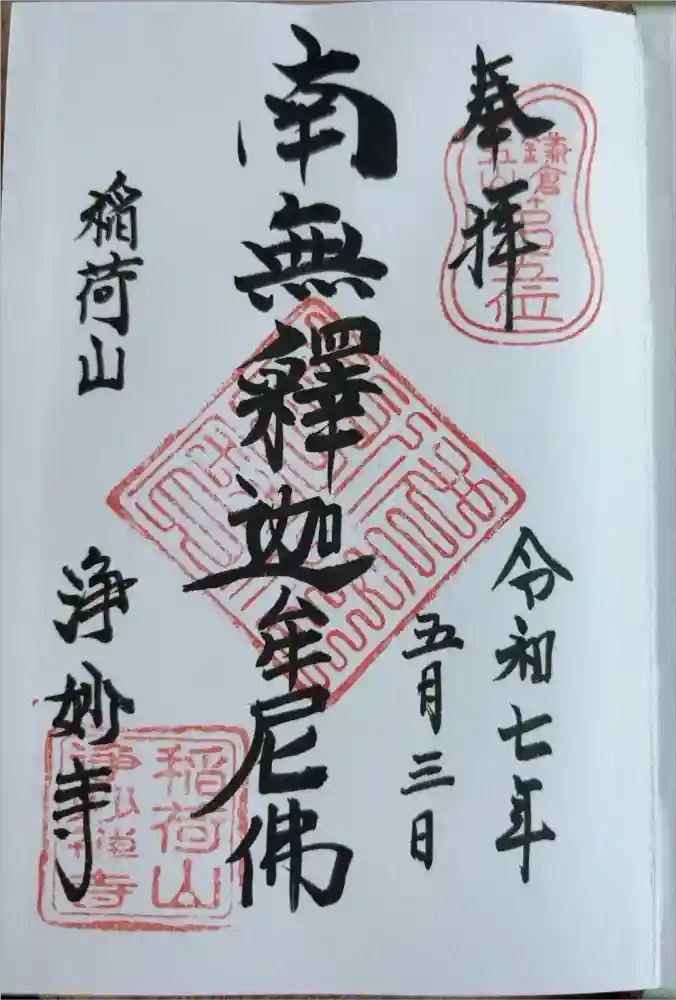 奉拝
鎌倉
五山第五位
令和七年
五月三日
南無釋迦牟尼佛
稲荷山
浄妙寺
稲荷山